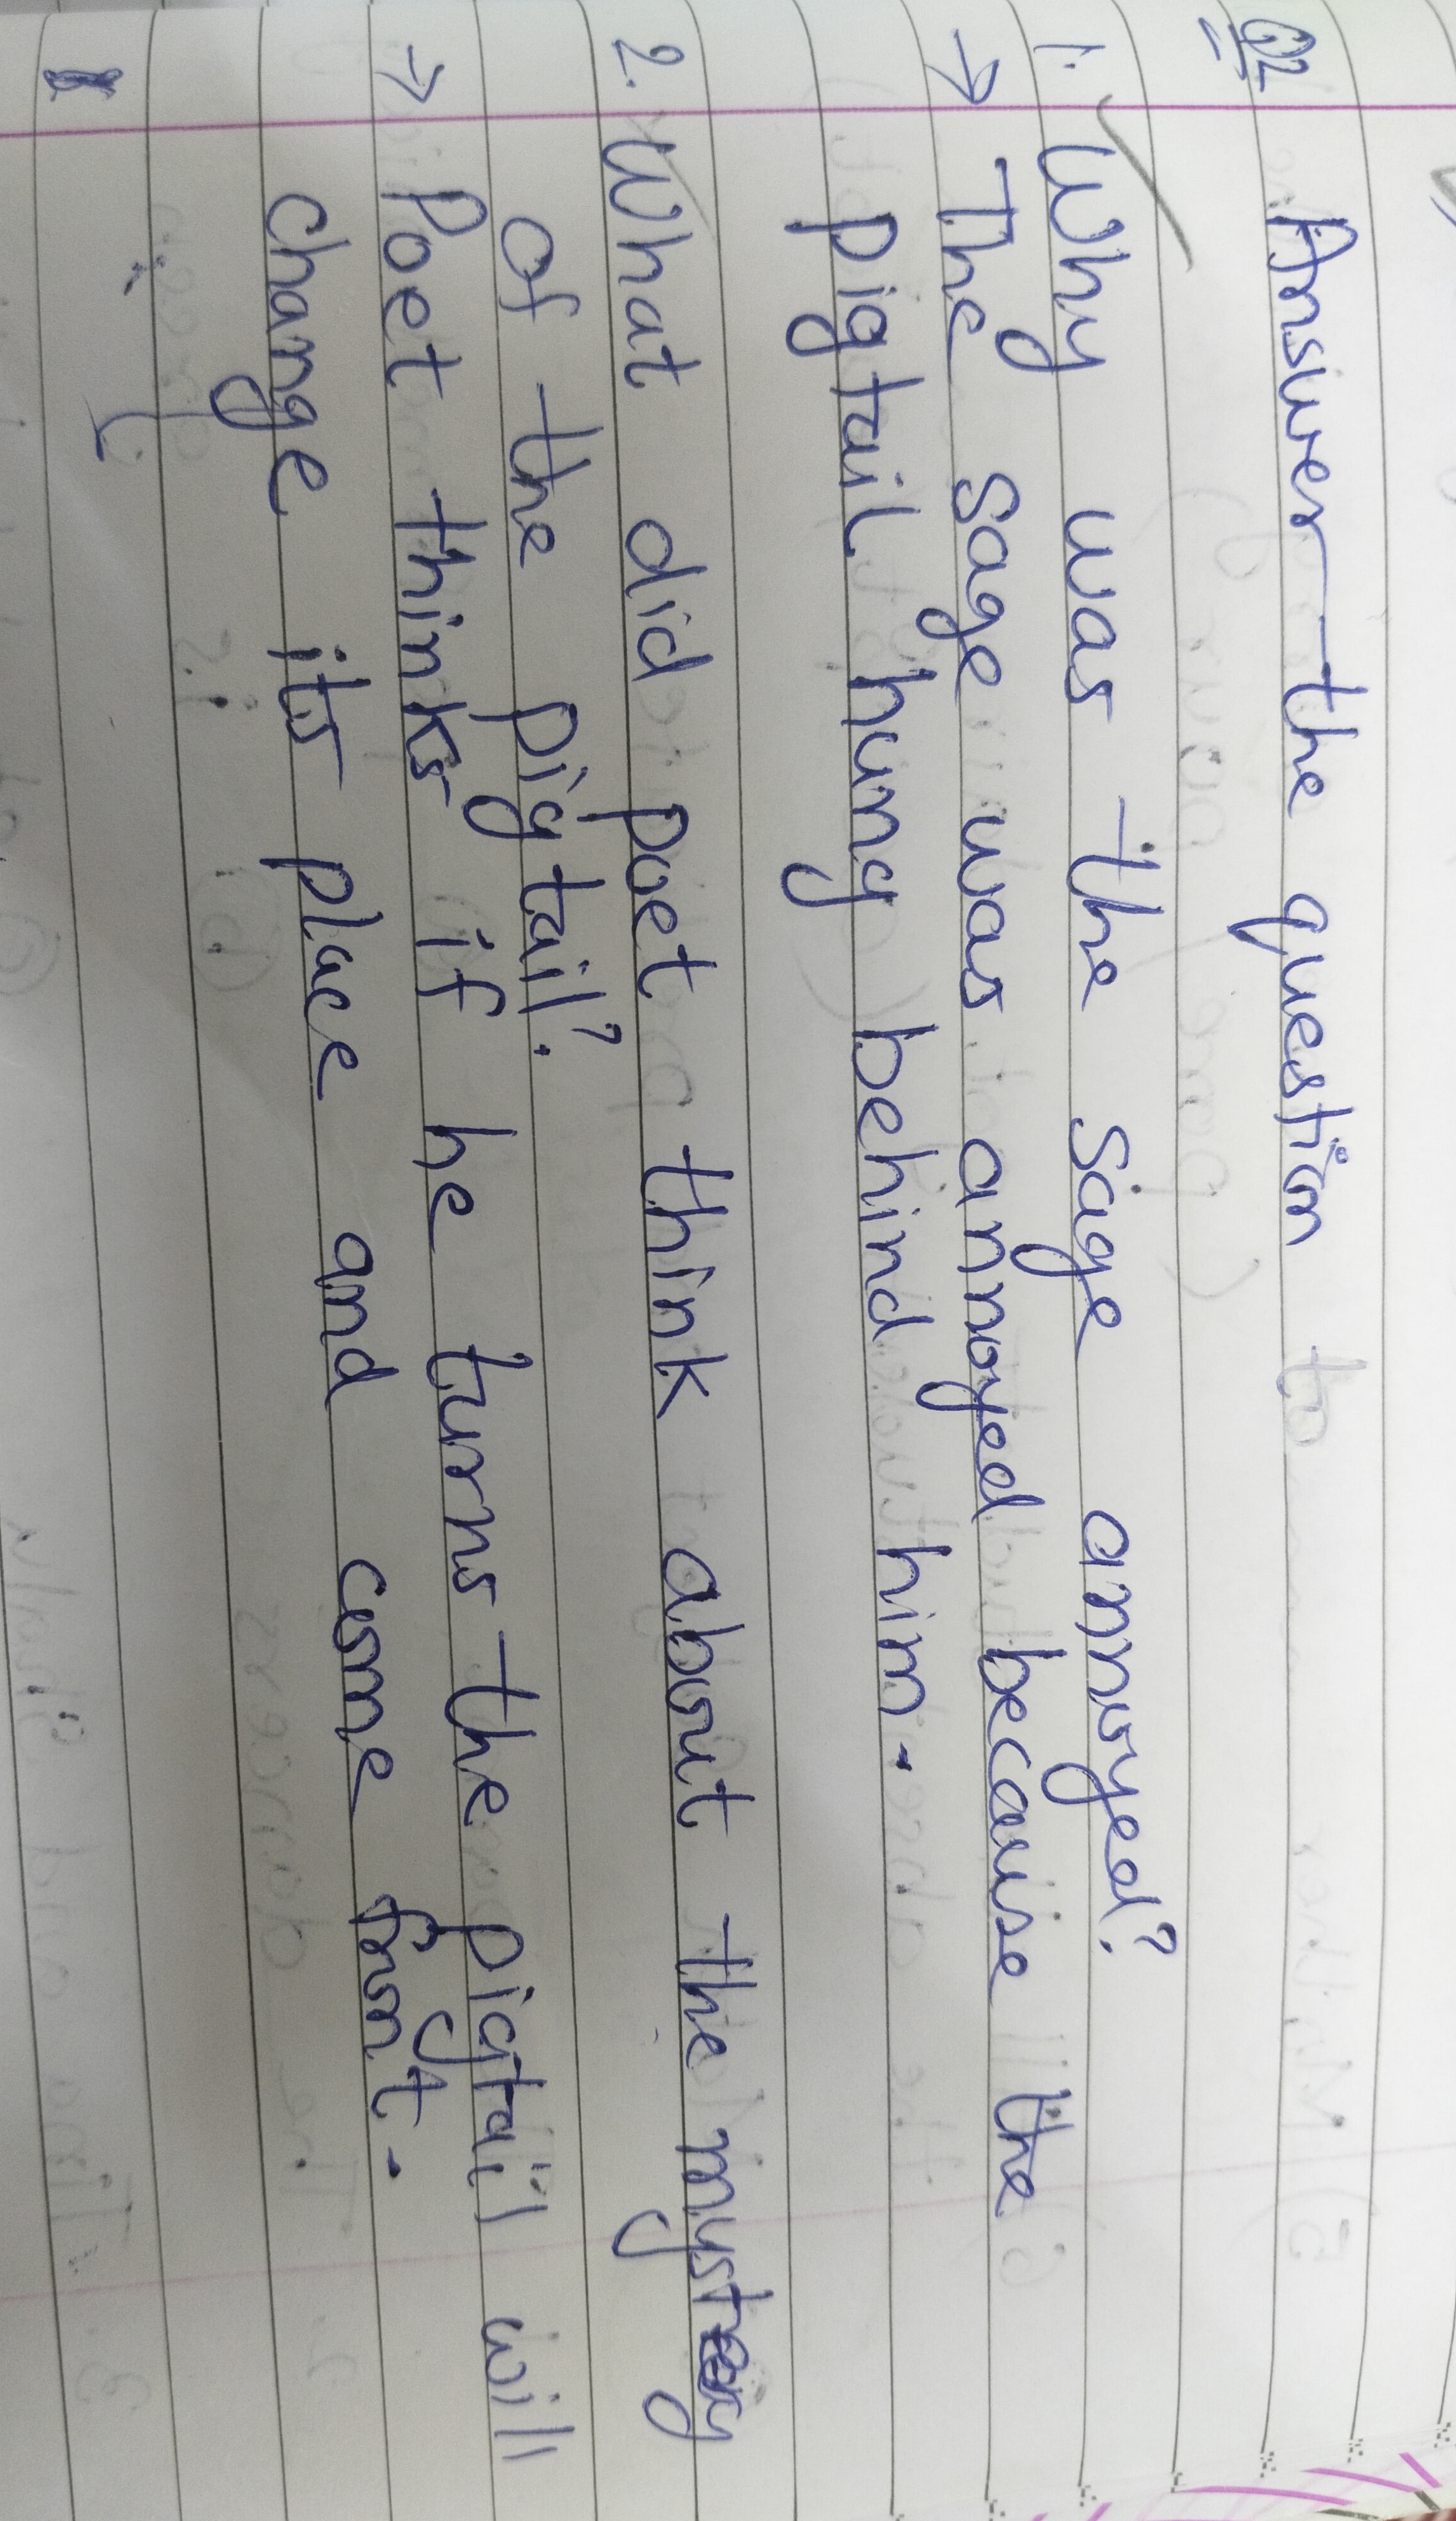 Q2 Answer the question
1. Why was the sage annoyed?
→ The sage was annoyed because the
pigtail hung behind him.
2. What did poet think about the mystery
of the pigtail?
→ Poet thinks if he turns the pigtail will
change its place and come front.